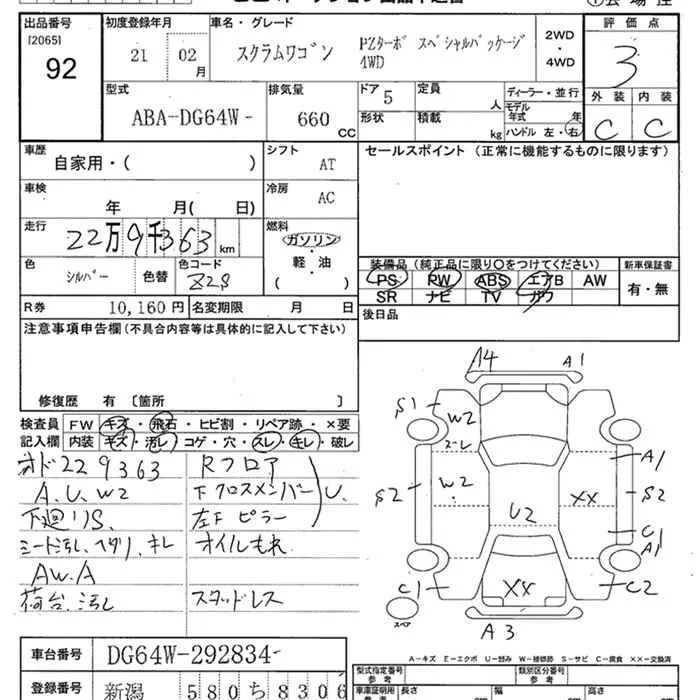 出品番号 初度登録年月 車名・グレード 評価点
[2065]
92
21 02月
スクラムワゴン PZターボ スペシャルパッケージ
4WD
2WD
・
4WD
3
型式 排気量 ドア 5 定員 人 ディーラー・並行
モデル年式 年
外装 内装
ABA-DG64W- 660 CC 形状 積載 kg ハンドル 左・右 C C
車歴 自家用・( ) シフト AT
セールスポイント (正常に機能するものに限ります)
車検 年 月( 日) 冷房 AC
走行 22万9千363km 燃料 ガソリン・軽・油 ( )
色 シルバー 色替 色コード Z2S
装備品 (純正品に限り○をつけてください) 新車保証書
PS PW ABS エアB AW 有・無
SR ナビ TV カワ
R券 10,160円 名変期限 月 日
後日品
注意事項申告欄(不具合内容等は具体的に記入して下さい)
修復歴 有 〔箇所 〕
検査員記入欄 FW キズ・飛石・ヒビ割・リペア跡・×要
内装 キズ・汚レ・コゲ・穴・スレ・キレ・破レ
オドメ229363 Rフロア
A.U.W2 下クロスメンバー U.
下廻りS. 左下ピラー
シート汚レ.ヘタリ.キレ オイルもれ
AW.A
荷台.汚レ スタッドレス
A4 A1
S1 W2
ズーレ
A1
S2 W2 U2 XX S2
C1
A1
C1 XX C2
スペア
A3
A-キズ E-エクボ U-凹み W-補修跡 S-サビ C-腐食 XX-交換済
車台番号 DG64W-292834-
登録番号 新潟 580ち8306
型式指定番号 参考 類別区分番号 参考
車庫証明用 参考 長さ 幅 高さ